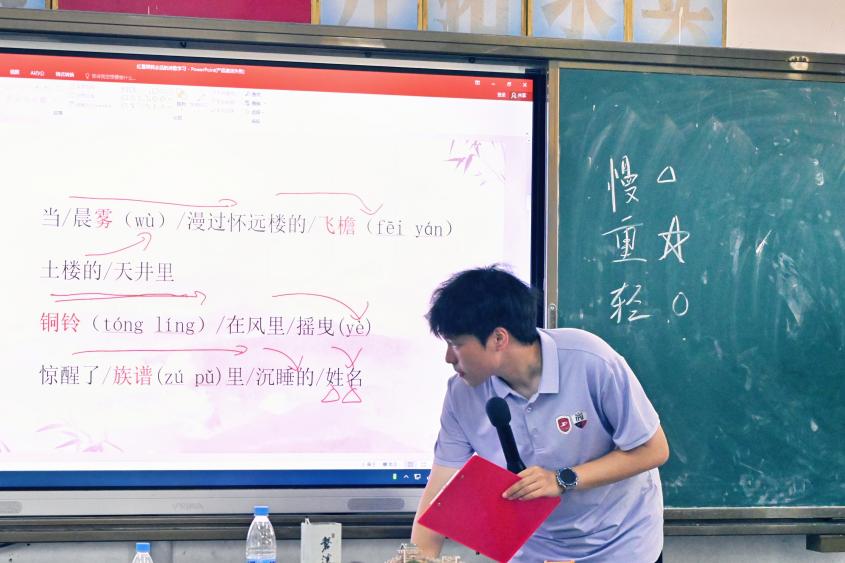 当/晨雾（wù）/漫过怀远楼的/飞檐（fēi yán）
土楼的/天井里
铜铃（tóng líng）/在风里/摇曳(yè)
惊醒了/族谱(zú pǔ)里/沉睡的/姓名
慢 △
重 ☆
轻 ○